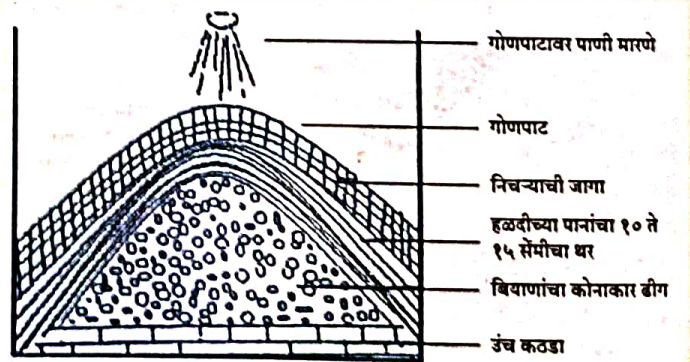 गोणपाटावर पाणी मारणे
गोणपाट
निचऱ्याची जागा
हळदीच्या पानांचा १० ते
१५ सेंमीचा थर
बियाणांचा कोनाकार ढीग
उंच कठडा